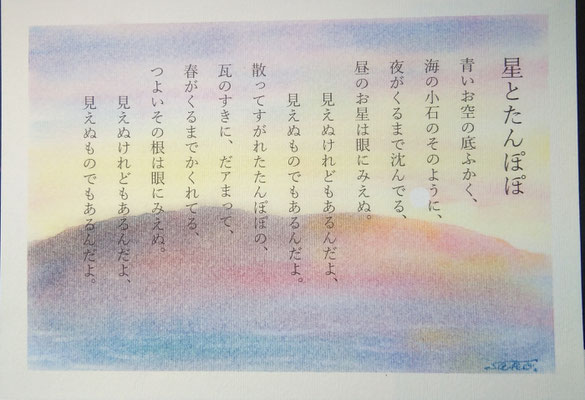 星とたんぽぽ
青いお空の底ふかく、
海の小石のそのように、
夜がくるまで沈んでる、
昼のお星は眼にみえぬ。
見えぬけれどもあるんだよ、
見えぬものでもあるんだよ。
散ってすがれたたんぽぽの、
瓦のすきに、だアまって、
春がくるまでかくれてる、
つよいその根は眼にみえぬ。
見えぬけれどもあるんだよ、
見えぬものでもあるんだよ。